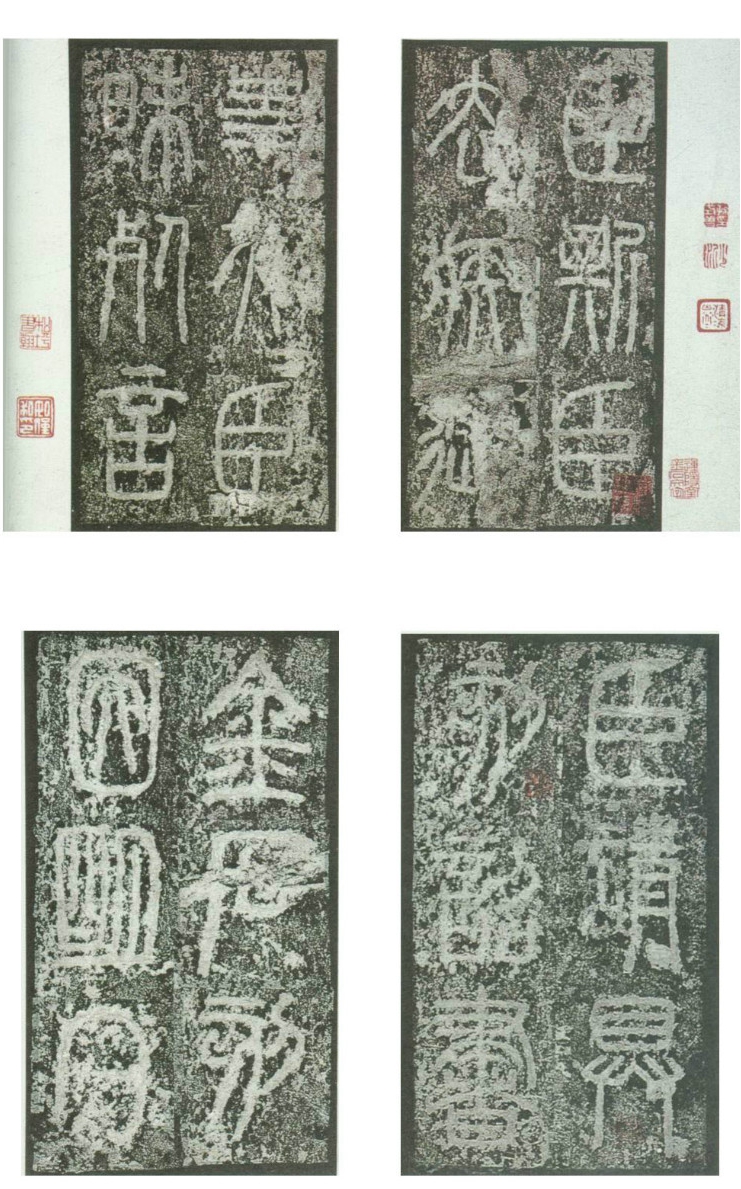 臣斯臣
去疾御
史夫臣
昧死言
臣請具
刻詔書
金石刻
因明白